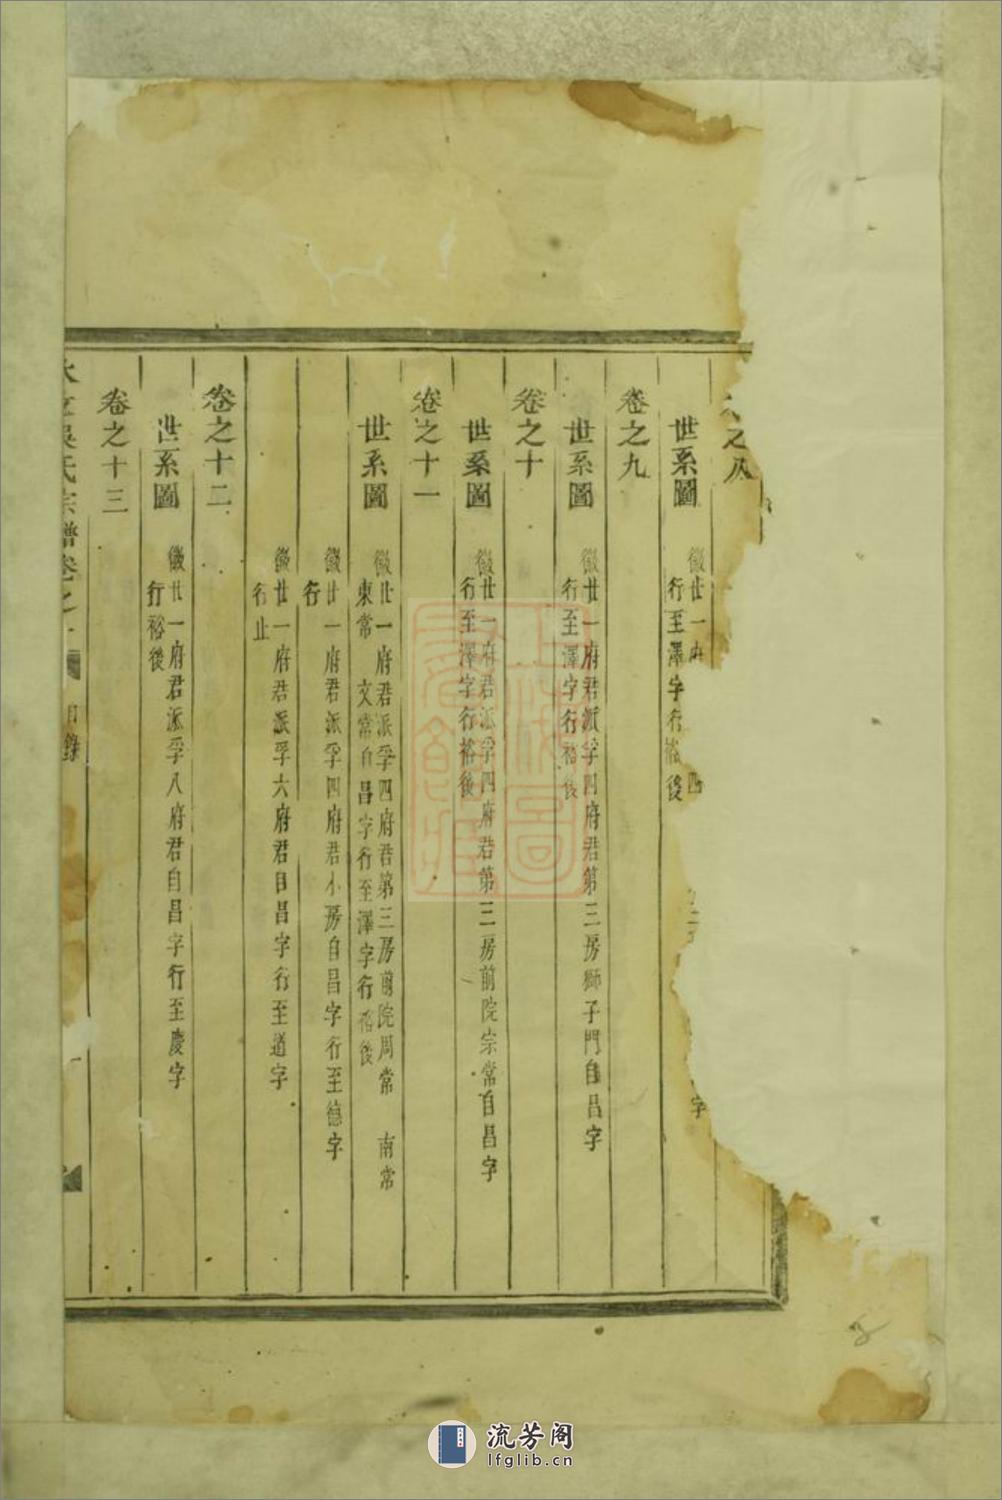 之八
世系圖
徽廿一府 四 字
行至澤字行裕後
卷之九
世系圖
徽廿一府君派孚四府君第三房獅子門自昌字
行至澤字行裕後
卷之十
世系圖
徽廿一府君派孚四府君第三房前院宗常自昌字
行至澤字行裕後
卷之十一
世系圖
徽廿一府君派孚四府君第三房前院周常 南常
東常 文常自昌字行至澤字行裕後
徽廿一府君派孚四府君小房自昌字行至德字
行
徽廿一府君派孚六府君自昌字行至道字
行止
卷之十二
世系圖
徽廿一府君派孚八府君自昌字行至慶字
行裕後
卷之十三
吳氏宗譜卷之 目錄
流芳阁
lfglib.cn